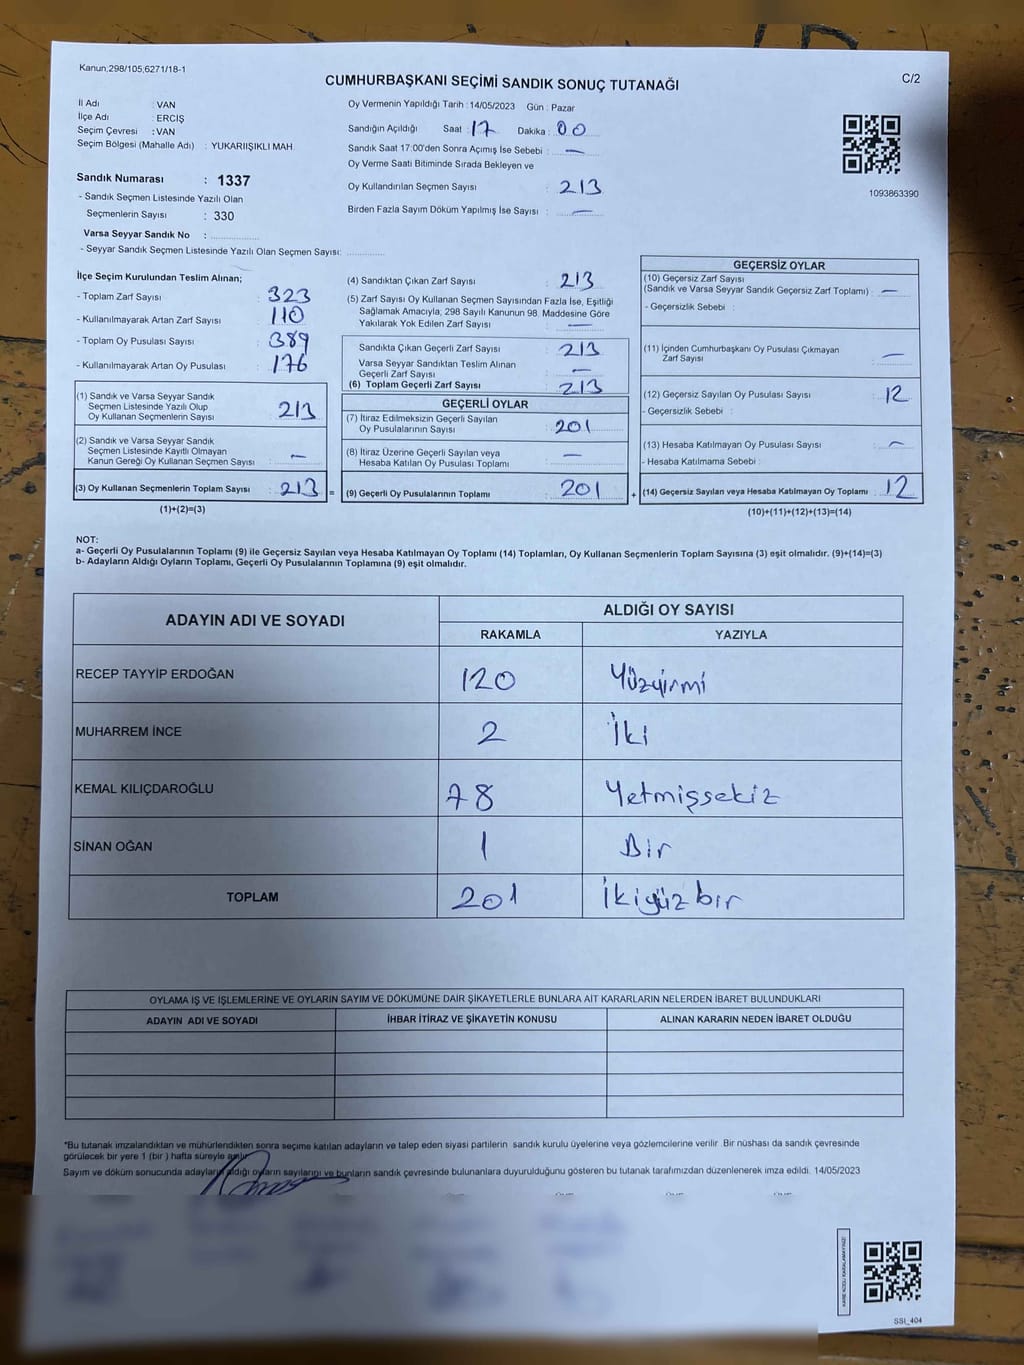 Kanun;298/105;6271/18-1
CUMHURBAŞKANI SEÇİMİ SANDIK SONUÇ TUTANAĞI
C/2
İl Adı : VAN
İlçe Adı : ERCİŞ
Seçim Çevresi : VAN
Seçim Bölgesi (Mahalle Adı) : YUKARIIŞIKLI MAH.
Sandık Numarası : 1337
- Sandık Seçmen Listesinde Yazılı Olan
Seçmenlerin Sayısı : 330
Varsa Seyyar Sandık No :
- Seyyar Sandık Seçmen Listesinde Yazılı Olan Seçmen Sayısı:
Oy Vermenin Yapıldığı Tarih : 14/05/2023 Gün : Pazar
Sandığın Açıldığı Saat : 17 Dakika : 00
Sandık Saat 17:00'den Sonra Açımış İse Sebebi : —
Oy Verme Saati Bitiminde Sırada Bekleyen ve
Oy Kullandırılan Seçmen Sayısı : 213
Birden Fazla Sayım Döküm Yapılmış İse Sayısı : —
1093863390
İlçe Seçim Kurulundan Teslim Alınan;
- Toplam Zarf Sayısı : 323
- Kullanılmayarak Artan Zarf Sayısı : 110
- Toplam Oy Pusulası Sayısı : 389
- Kullanılmayarak Artan Oy Pusulası : 176
(1) Sandık ve Varsa Seyyar Sandık
Seçmen Listesinde Yazılı Olup
Oy Kullanan Seçmenlerin Sayısı : 213
(2) Sandık ve Varsa Seyyar Sandık
Seçmen Listesinde Kayıtlı Olmayan
Kanun Gereği Oy Kullanan Seçmen Sayısı : —
(3) Oy Kullanan Seçmenlerin Toplam Sayısı : 213 =
(1)+(2)=(3)
(4) Sandıktan Çıkan Zarf Sayısı : 213
(5) Zarf Sayısı Oy Kullanan Seçmen Sayısından Fazla İse, Eşitliği
Sağlamak Amacıyla; 298 Sayılı Kanunun 98. Maddesine Göre
Yakılarak Yok Edilen Zarf Sayısı : —
Sandıkta Çıkan Geçerli Zarf Sayısı : 213
Varsa Seyyar Sandıktan Teslim Alınan
Geçerli Zarf Sayısı : —
(6) Toplam Geçerli Zarf Sayısı : 213
GEÇERLİ OYLAR
(7) İtiraz Edilmeksizin Geçerli Sayılan
Oy Pusulalarının Sayısı : 201
(8) İtiraz Üzerine Geçerli Sayılan veya
Hesaba Katılan Oy Pusulası Toplamı : —
(9) Geçerli Oy Pusulalarının Toplamı : 201 +
GEÇERSİZ OYLAR
(10) Geçersiz Zarf Sayısı
(Sandık ve Varsa Seyyar Sandık Geçersiz Zarf Toplamı) : —
- Geçersizlik Sebebi :
(11) İçinden Cumhurbaşkanı Oy Pusulası Çıkmayan
Zarf Sayısı : —
(12) Geçersiz Sayılan Oy Pusulası Sayısı : 12
- Geçersizlik Sebebi :
(13) Hesaba Katılmayan Oy Pusulası Sayısı : —
- Hesaba Katılmama Sebebi :
(14) Geçersiz Sayılan veya Hesaba Katılmayan Oy Toplamı : 12
(10)+(11)+(12)+(13)=(14)
NOT:
a- Geçerli Oy Pusulalarının Toplamı (9) ile Geçersiz Sayılan veya Hesaba Katılmayan Oy Toplamı (14) Toplamları, Oy Kullanan Seçmenlerin Toplam Sayısına (3) eşit olmalıdır. (9)+(14)=(3)
b- Adayların Aldığı Oyların Toplamı, Geçerli Oy Pusulalarının Toplamına (9) eşit olmalıdır.
ADAYIN ADI VE SOYADI
ALDIĞI OY SAYISI
RAKAMLA YAZIYLA
RECEP TAYYİP ERDOĞAN 120 Yüzyirmi
MUHARREM İNCE 2 İki
KEMAL KILIÇDAROĞLU 78 Yetmişsekiz
SİNAN OĞAN 1 Bir
TOPLAM 201 İkiyüzbir
OYLAMA İŞ VE İŞLEMLERİNE VE OYLARIN SAYIM VE DÖKÜMÜNE DAİR ŞİKAYETLERLE BUNLARA AİT KARARLARIN NELERDEN İBARET BULUNDUKLARI
ADAYIN ADI VE SOYADI İHBAR İTİRAZ VE ŞİKAYETİN KONUSU ALINAN KARARIN NEDEN İBARET OLDUĞU
*Bu tutanak imzalandıktan ve mühürlendikten sonra seçime katılan adayların ve talep eden siyasi partilerin sandık kurulu üyelerine veya gözlemcilerine verilir. Bir nüshası da sandık çevresinde
görülecek bir yere 1 (bir ) hafta süreyle asılır.
Sayım ve döküm sonucunda adayların aldığı oyların sayılarını ve bunların sandık çevresinde bulunanlara duyurulduğunu gösteren bu tutanak tarafımızdan düzenlenerek imza edildi. 14/05/2023
KARE KODU KARALAMAYINIZ!
SSI_404